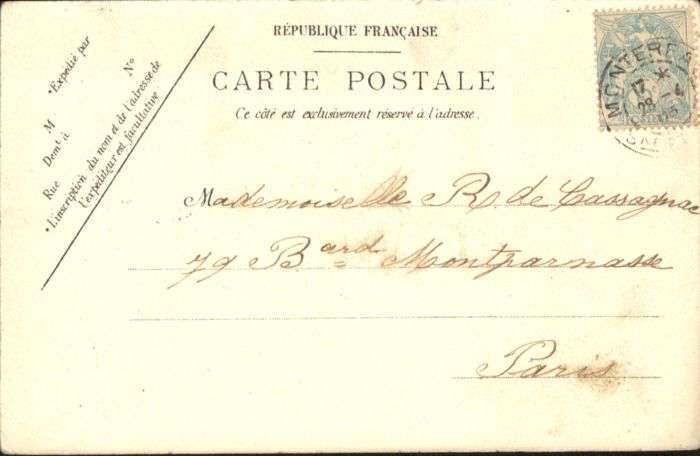 RÉPUBLIQUE FRANÇAISE
CARTE POSTALE
Ce côté est exclusivement réservé à l'adresse.
*Expédié par
N°
M
Demt à
Rue
*L'inscription du nom et de l'adresse de
l'expéditeur est facultative
Mademoiselle R. de Cassagnac
79 Bard Montparnasse
Paris
MONTERE
17